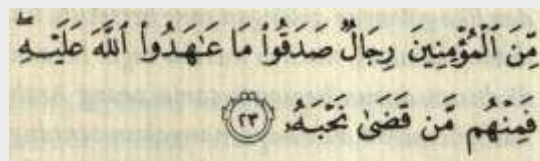 مِّنَ ٱلْمُؤْمِنِينَ رِجَالٌ صَدَقُوا۟ مَا عَٰهَدُوا۟ ٱللَّهَ عَلَيْهِ ۖ
فَمِنْهُم مَّن قَضَىٰ نَحْبَهُۥ ٢٣